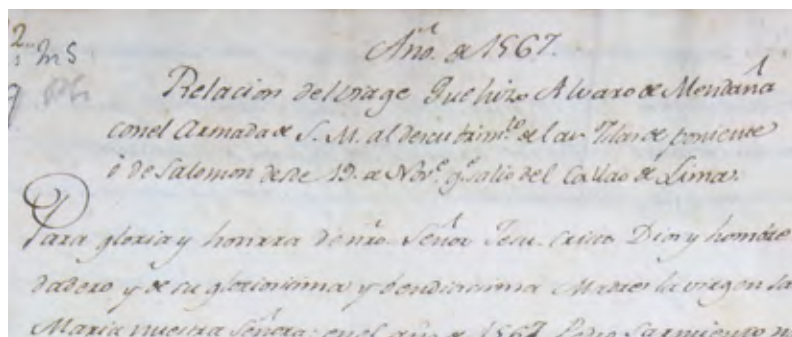 Año. de 1567.
Relacion del viage que hizo Alvaro de Mendaña
con el Armada de S. M. al descubrim.to de las Yslas de poniente
ò de Salomon desde 19. de Nov.e q.e salio del Callao de Lima.
Para gloria y honrra de nro. Señor Jesu. Cristo Dios y hombre
dadero y de su gloriosissima y bendissima Madre la virgen Sa
Maria nuestra Señora: en el año de 1567. Pedro Sarmiento